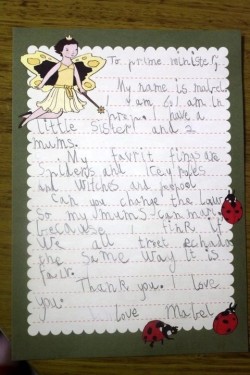 To prime minister,
My name is mabel
I am 6 I am in
prep. I have a
little sister and 2
mums.
My favrit fings are
spiders and
and witches and
Can you change the law
so my mums can marry
Because I think if
we all treet echader
the same way it is
fair.
Thank you. I love
you.
love Mabel